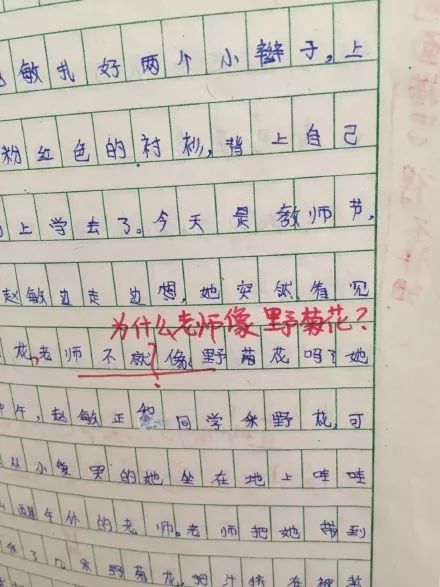 敏扎好两个小辫子,上
粉红色的衬衫,背上自己
上学去了。今天是教师节,
赵敏边走边想,她突然看见
为什么老师像野菊花?
花,老师不就像野菊花吗?她
午,赵敏正和同学采野花,可
从小爱哭的她坐在地上哇哇
醒午休的老师。老师把她带到
了几朵野菊花,把汁挤在